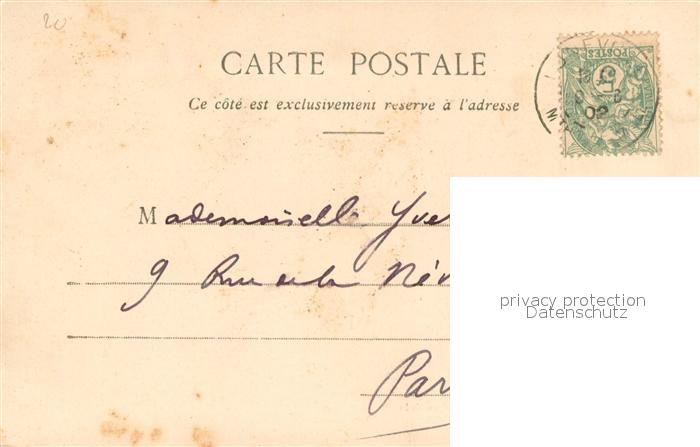 20
CARTE POSTALE
Ce côté est exclusivement réservé à l'adresse
POSTES
5
Mademoiselle Yve
9 Rue de la Név
Par
privacy protection
Datenschutz